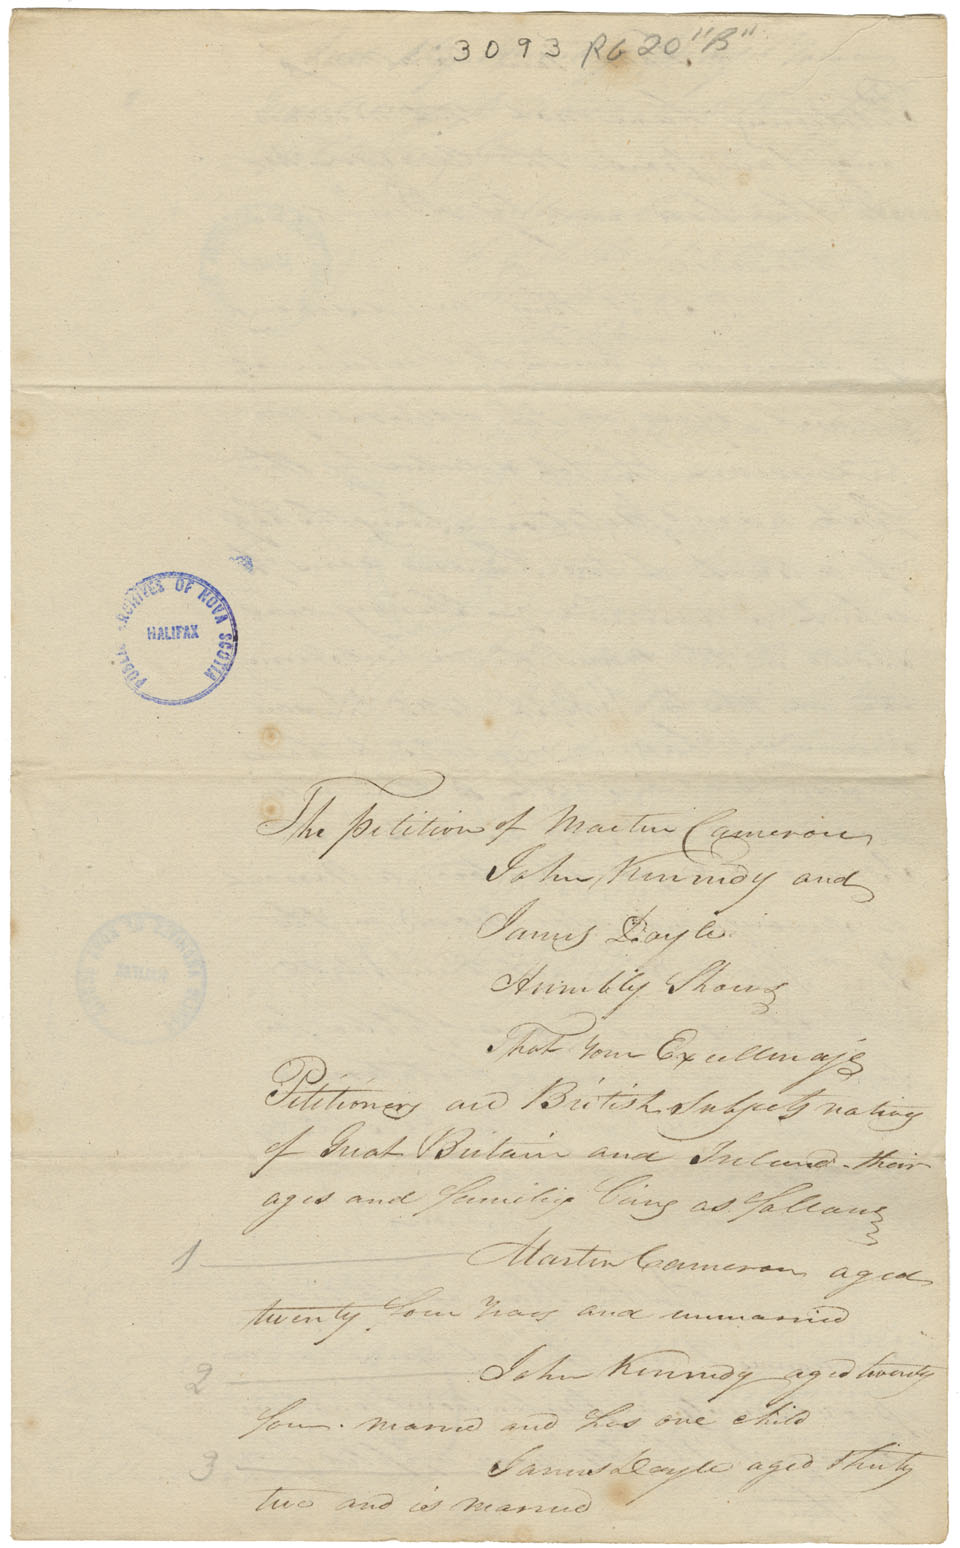 3093 RG 20 "B"
PUBLIC ARCHIVES OF NOVA SCOTIA
HALIFAX
The Petition of Martin Cameron
John Kennedy and
James Doyle
Humbly Shows
That your Excellencys
Petitioners are British Subjects natives
of Great Britain and Ireland their
ages and families being as follows
1 Martin Cameron aged
twenty four years and unmarried
2 John Kennedy aged twenty
four married and has one child
3 James Doyle aged thirty
two and is married